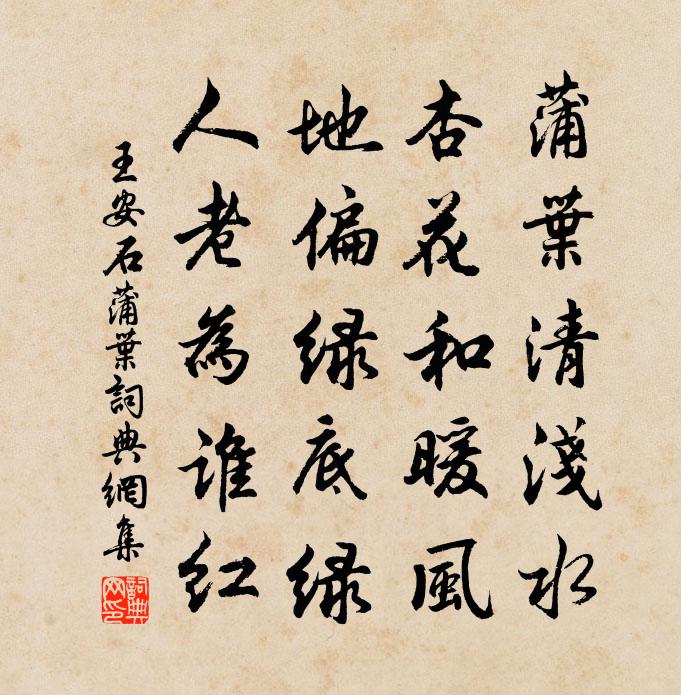 蒲葉清淺水
杏花和暖風
地偏緣底綠
人老為誰紅
王安石蒲葉詞典網集
詞典网印